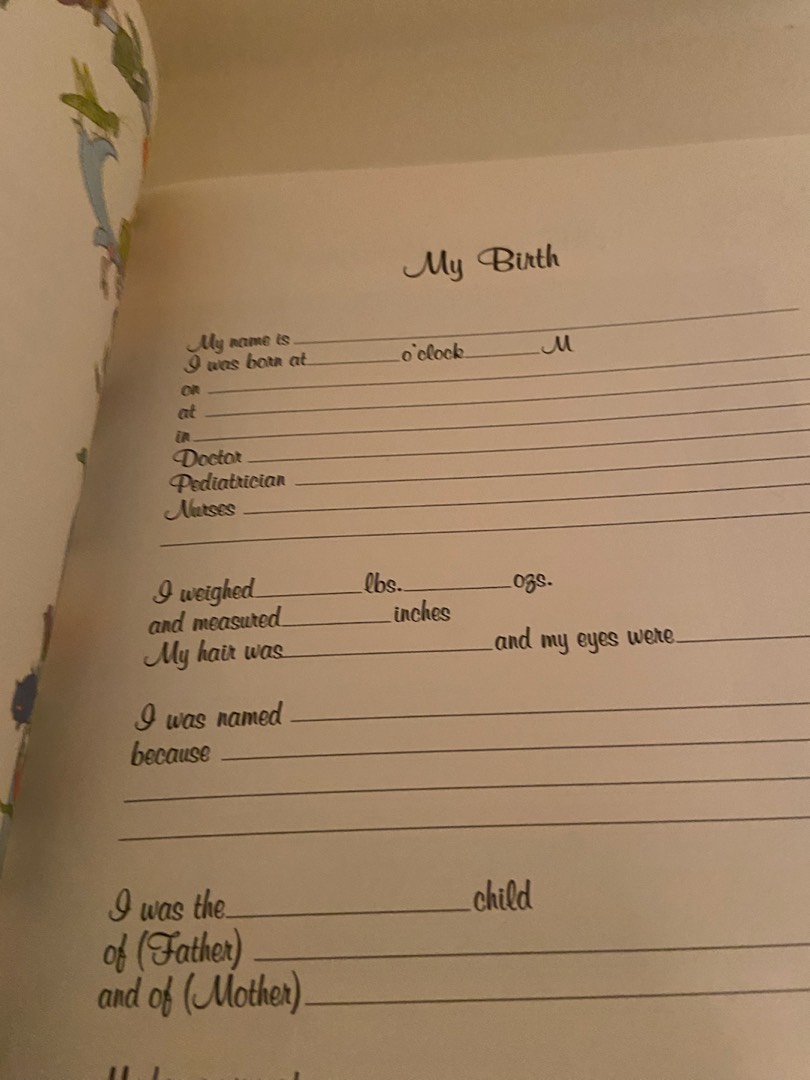 My Birth
My name is
I was born at o'clock M
on
at
in
Doctor
Pediatrician
Nurses
I weighed lbs. ozs.
and measured inches
My hair was and my eyes were
I was named
because
I was the child
of (Father)
and of (Mother)